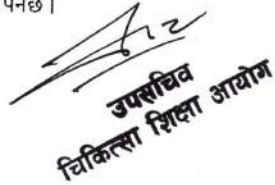 पर्नेछ।
उपसचिव
चिकित्सा शिक्षा आयोग